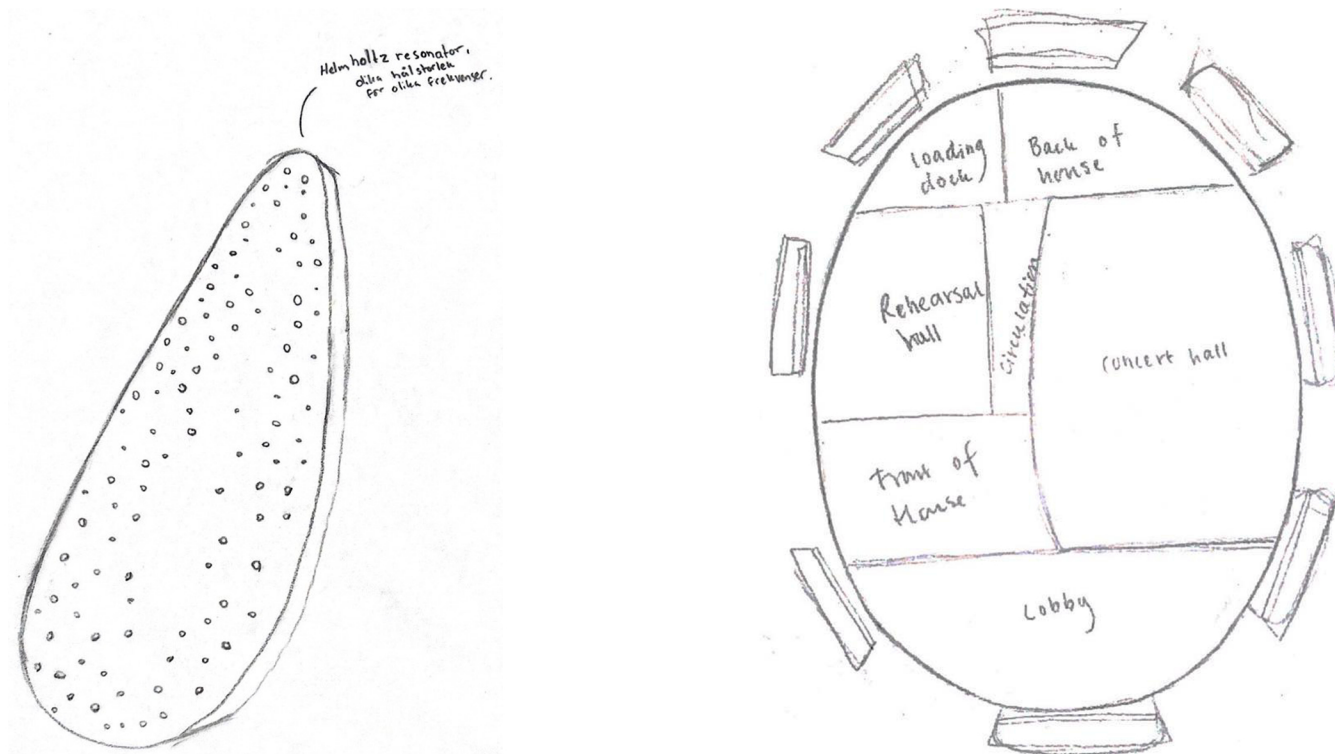 Helmholtz resonator,
olika hålstorlek
för olika frekvenser.
Loading
dock
Back of
house
Rehearsal
hall
Circulation
concert hall
Front of
House
Lobby